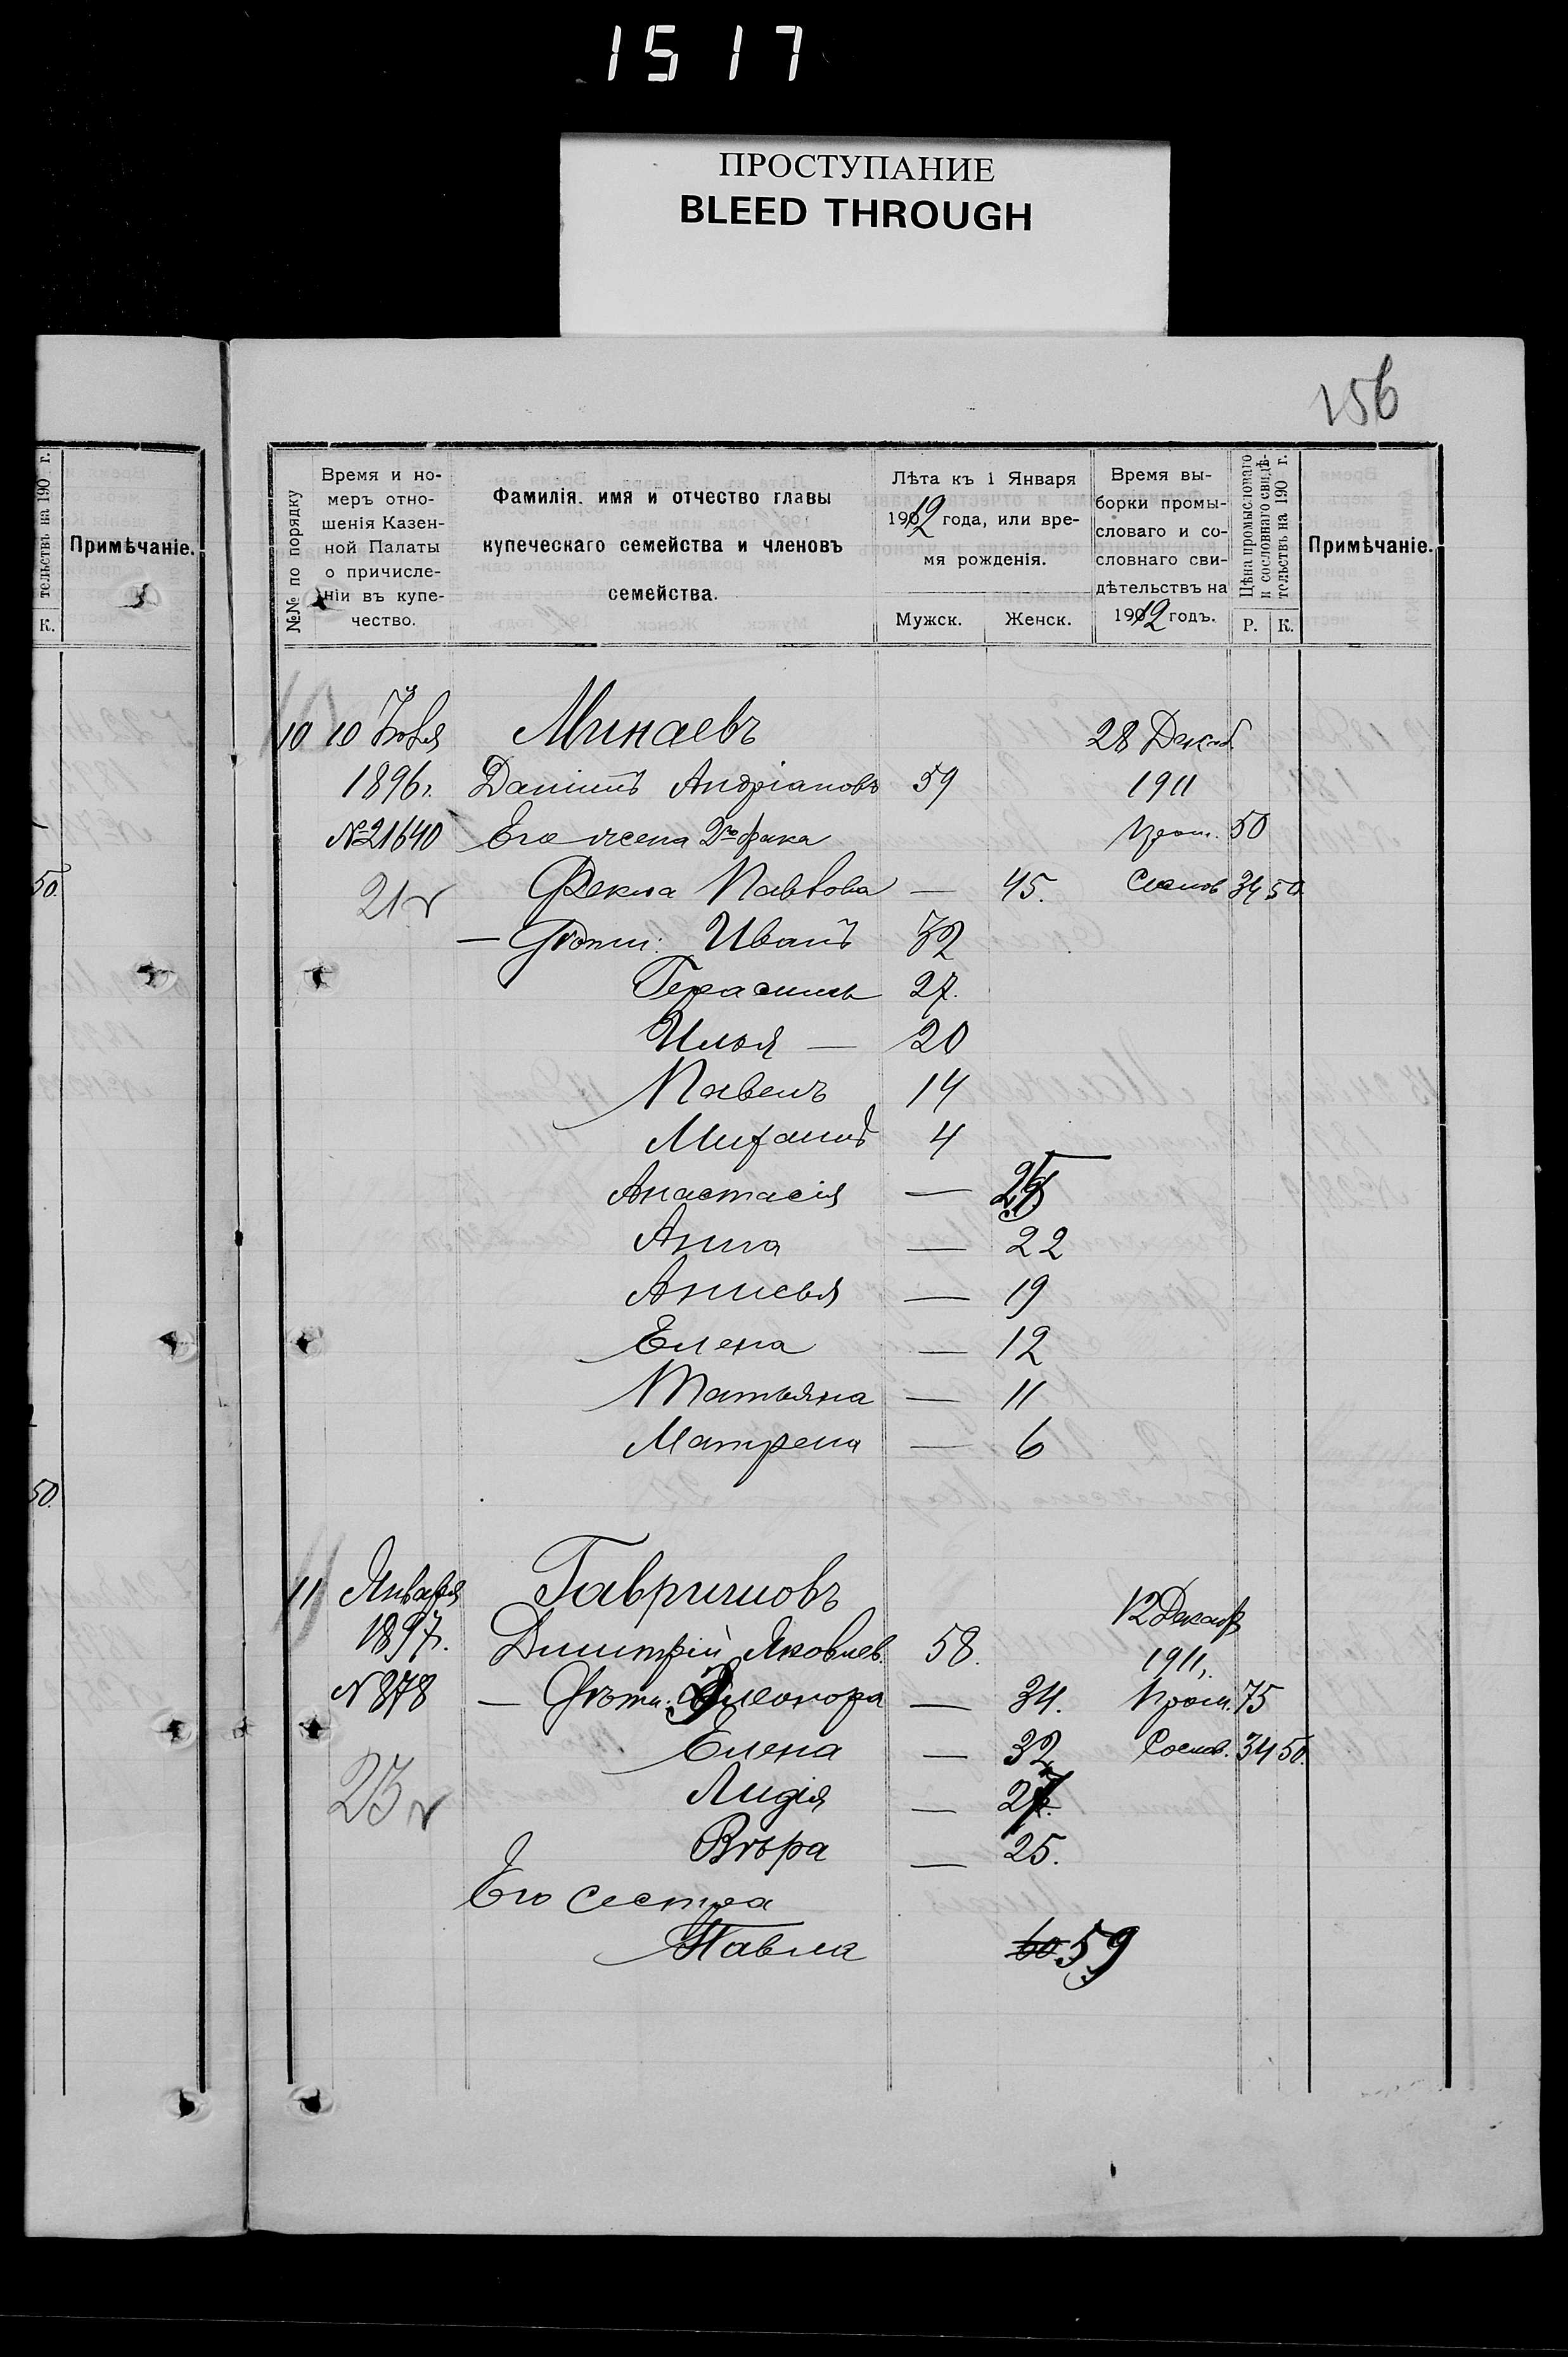 1517
ПРОСТУПАНИЕ
BLEED THROUGH
156
тельствъ на 190 г.
К.
Примѣчаніе.
50.
50.
№№ по порядку
Время и но-
меръ отно-
шенія Казен-
ной Палаты
о причисле-
ніи въ купе-
чество.
Фамилія. имя и отчество главы
купеческаго семейства и членовъ
семейства.
Лѣта къ 1 Января
1912 года, или вре-
мя рожденія.
Мужск. Женск.
Время вы-
борки промы-
словаго и со-
словнаго сви-
дѣтельствъ на
1912 годъ.
Цѣна промысловаго
и сословнаго свидѣ-
тельствъ на 190 г.
Р. К.
Примѣчаніе.
10 10 Минаевъ 28 Декаб.
1896. Даніилъ Андріановъ 59 1911
№21640 Его жена 2го брака Пром. 50
21 Фекла Павлова — 45. Сослов 34 50.
— Дѣти: Иванъ 32
Герасимъ 27.
Илья — 20
Павелъ 14
Михаилъ 4
Анастасія —
Анна — 22
Анисья — 19
Елена — 12
Татьяна — 11
Матрена — 6
11 Января Гавриловъ 12 Декабр
1897. Димитрій Яковлев. 58. 1911.
№ 878 — Дѣти: Элеонора — 34. Пром. 75
Елена — 32 Сослов. 34 50.
23 Лидія — 27.
Вѣра — 25.
Его сестра
Павла 60 59